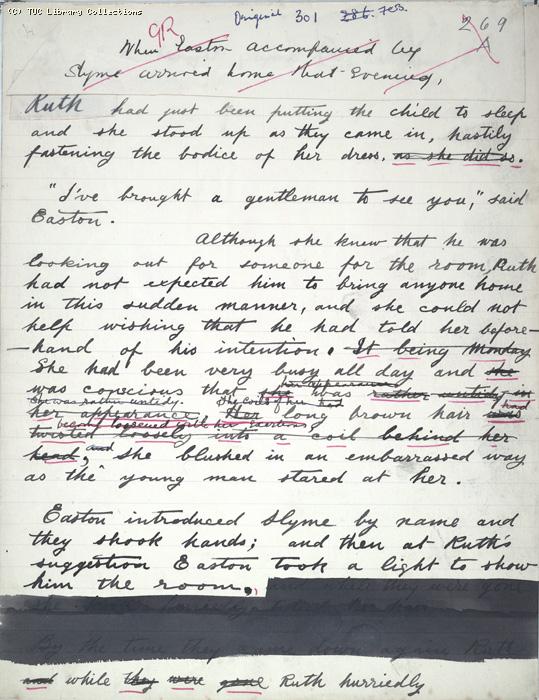 (C) TUC Library Collections
Original 301 286. 7ds. 269
GR A
When Easton accompanied by
Slyme arrived home that Evening,
Ruth had just been putting the child to sleep
and she stood up as they came in, hastily
fastening the bodice of her dress. as she did so.
"I've brought a gentleman to see you," said
Easton.
Although she knew that he was
looking out for someone for the room, Ruth
had not expected him to bring anyone home
in this sudden manner, and she could not
help wishing that he had told her before-
-hand of his intention. It being Monday
She had been very busy all day and she
her appearance
was conscious that she was rather untidy in
She was rather untidy. The coils of her had
her appearance. Her long brown hair was had
begun loosened with her exertions
twisted loosely into a coil behind her
head, and she blushed in an embarrassed way
as the young man stared at her.
Easton introduced Slyme by name and
they shook hands; and then at Ruth's
suggestion Easton took a light to show
him the room., and while they were gone
By the time they came down again Ruth
and while they were gone Ruth hurriedly